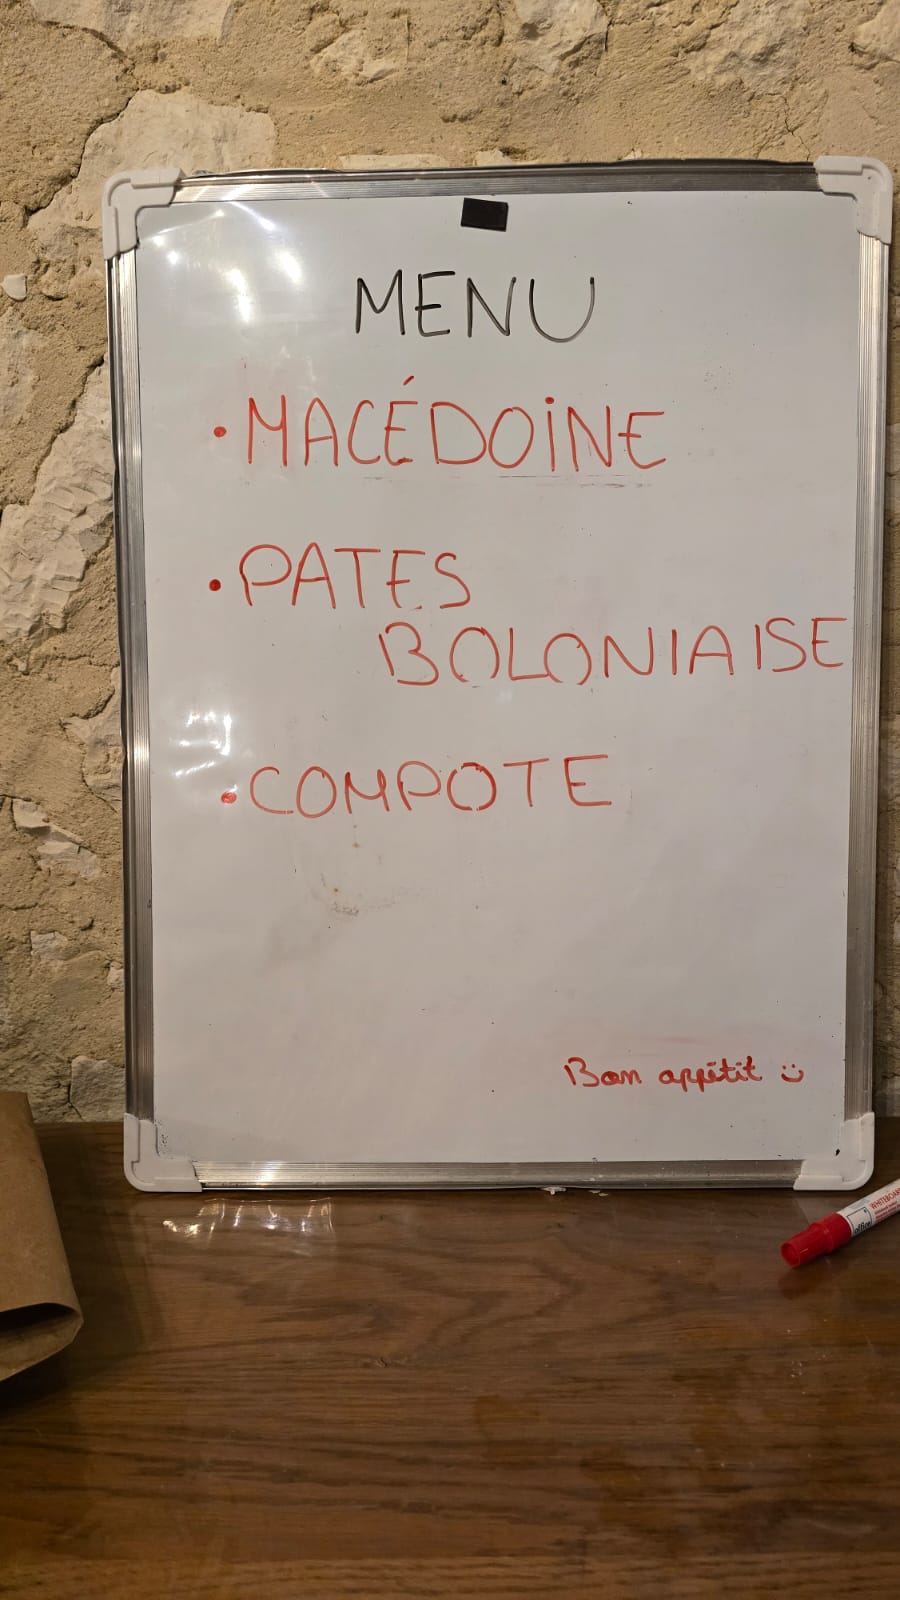 MENU
• MACÉDOINE
• PATES
BOLONIAISE
• COMPOTE
Bon appétit :)
WHITEBOARD
office